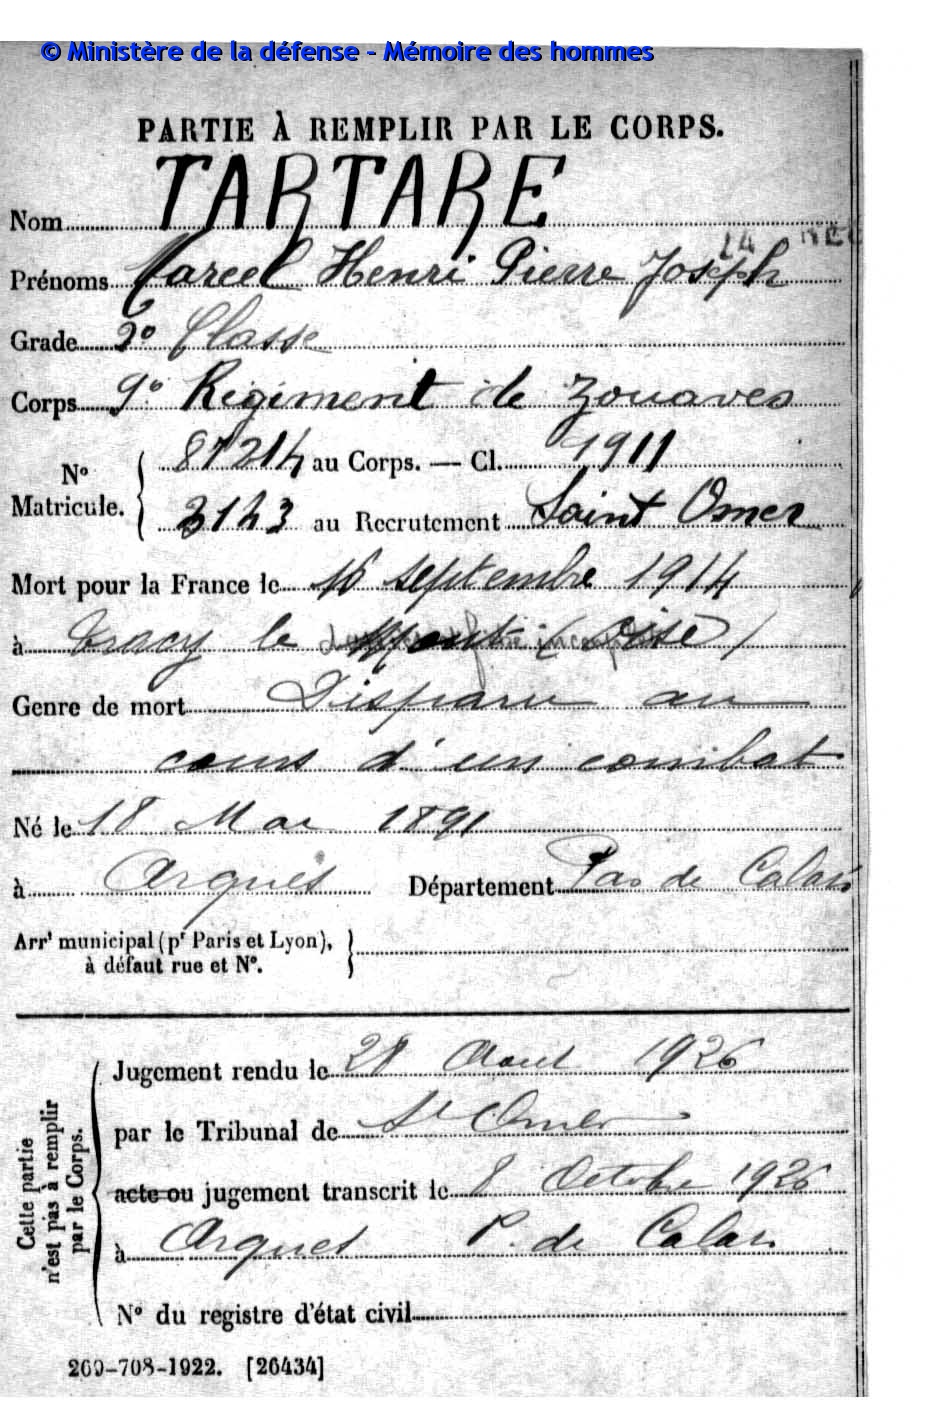 © Ministère de la défense - Mémoire des hommes
PARTIE À REMPLIR PAR LE CORPS.
Nom TARTARE
Prénoms Marcel Henri Pierre Joseph
Grade 2e Classe
Corps 9e Régiment de Zouaves
N° Matricule. { 81214 au Corps. — Cl. 1911
3143 au Recrutement Saint Omer
Mort pour la France le 16 septembre 1914
à Tracy le Mont (Oise)
Genre de mort Disparu au
cours d'un combat
Né le 18 Mai 1891
à Arques Département Pas de Calais
Arrt municipal (pr Paris et Lyon),
à défaut rue et N°.
Cette partie
n'est pas à remplir
par le Corps.
Jugement rendu le 28 Aout 1926
par le Tribunal de St Omer
acte ou jugement transcrit le 8 Octobre 1926
à Arques P. de Calais
N° du registre d'état civil
269-708-1922. [26434]